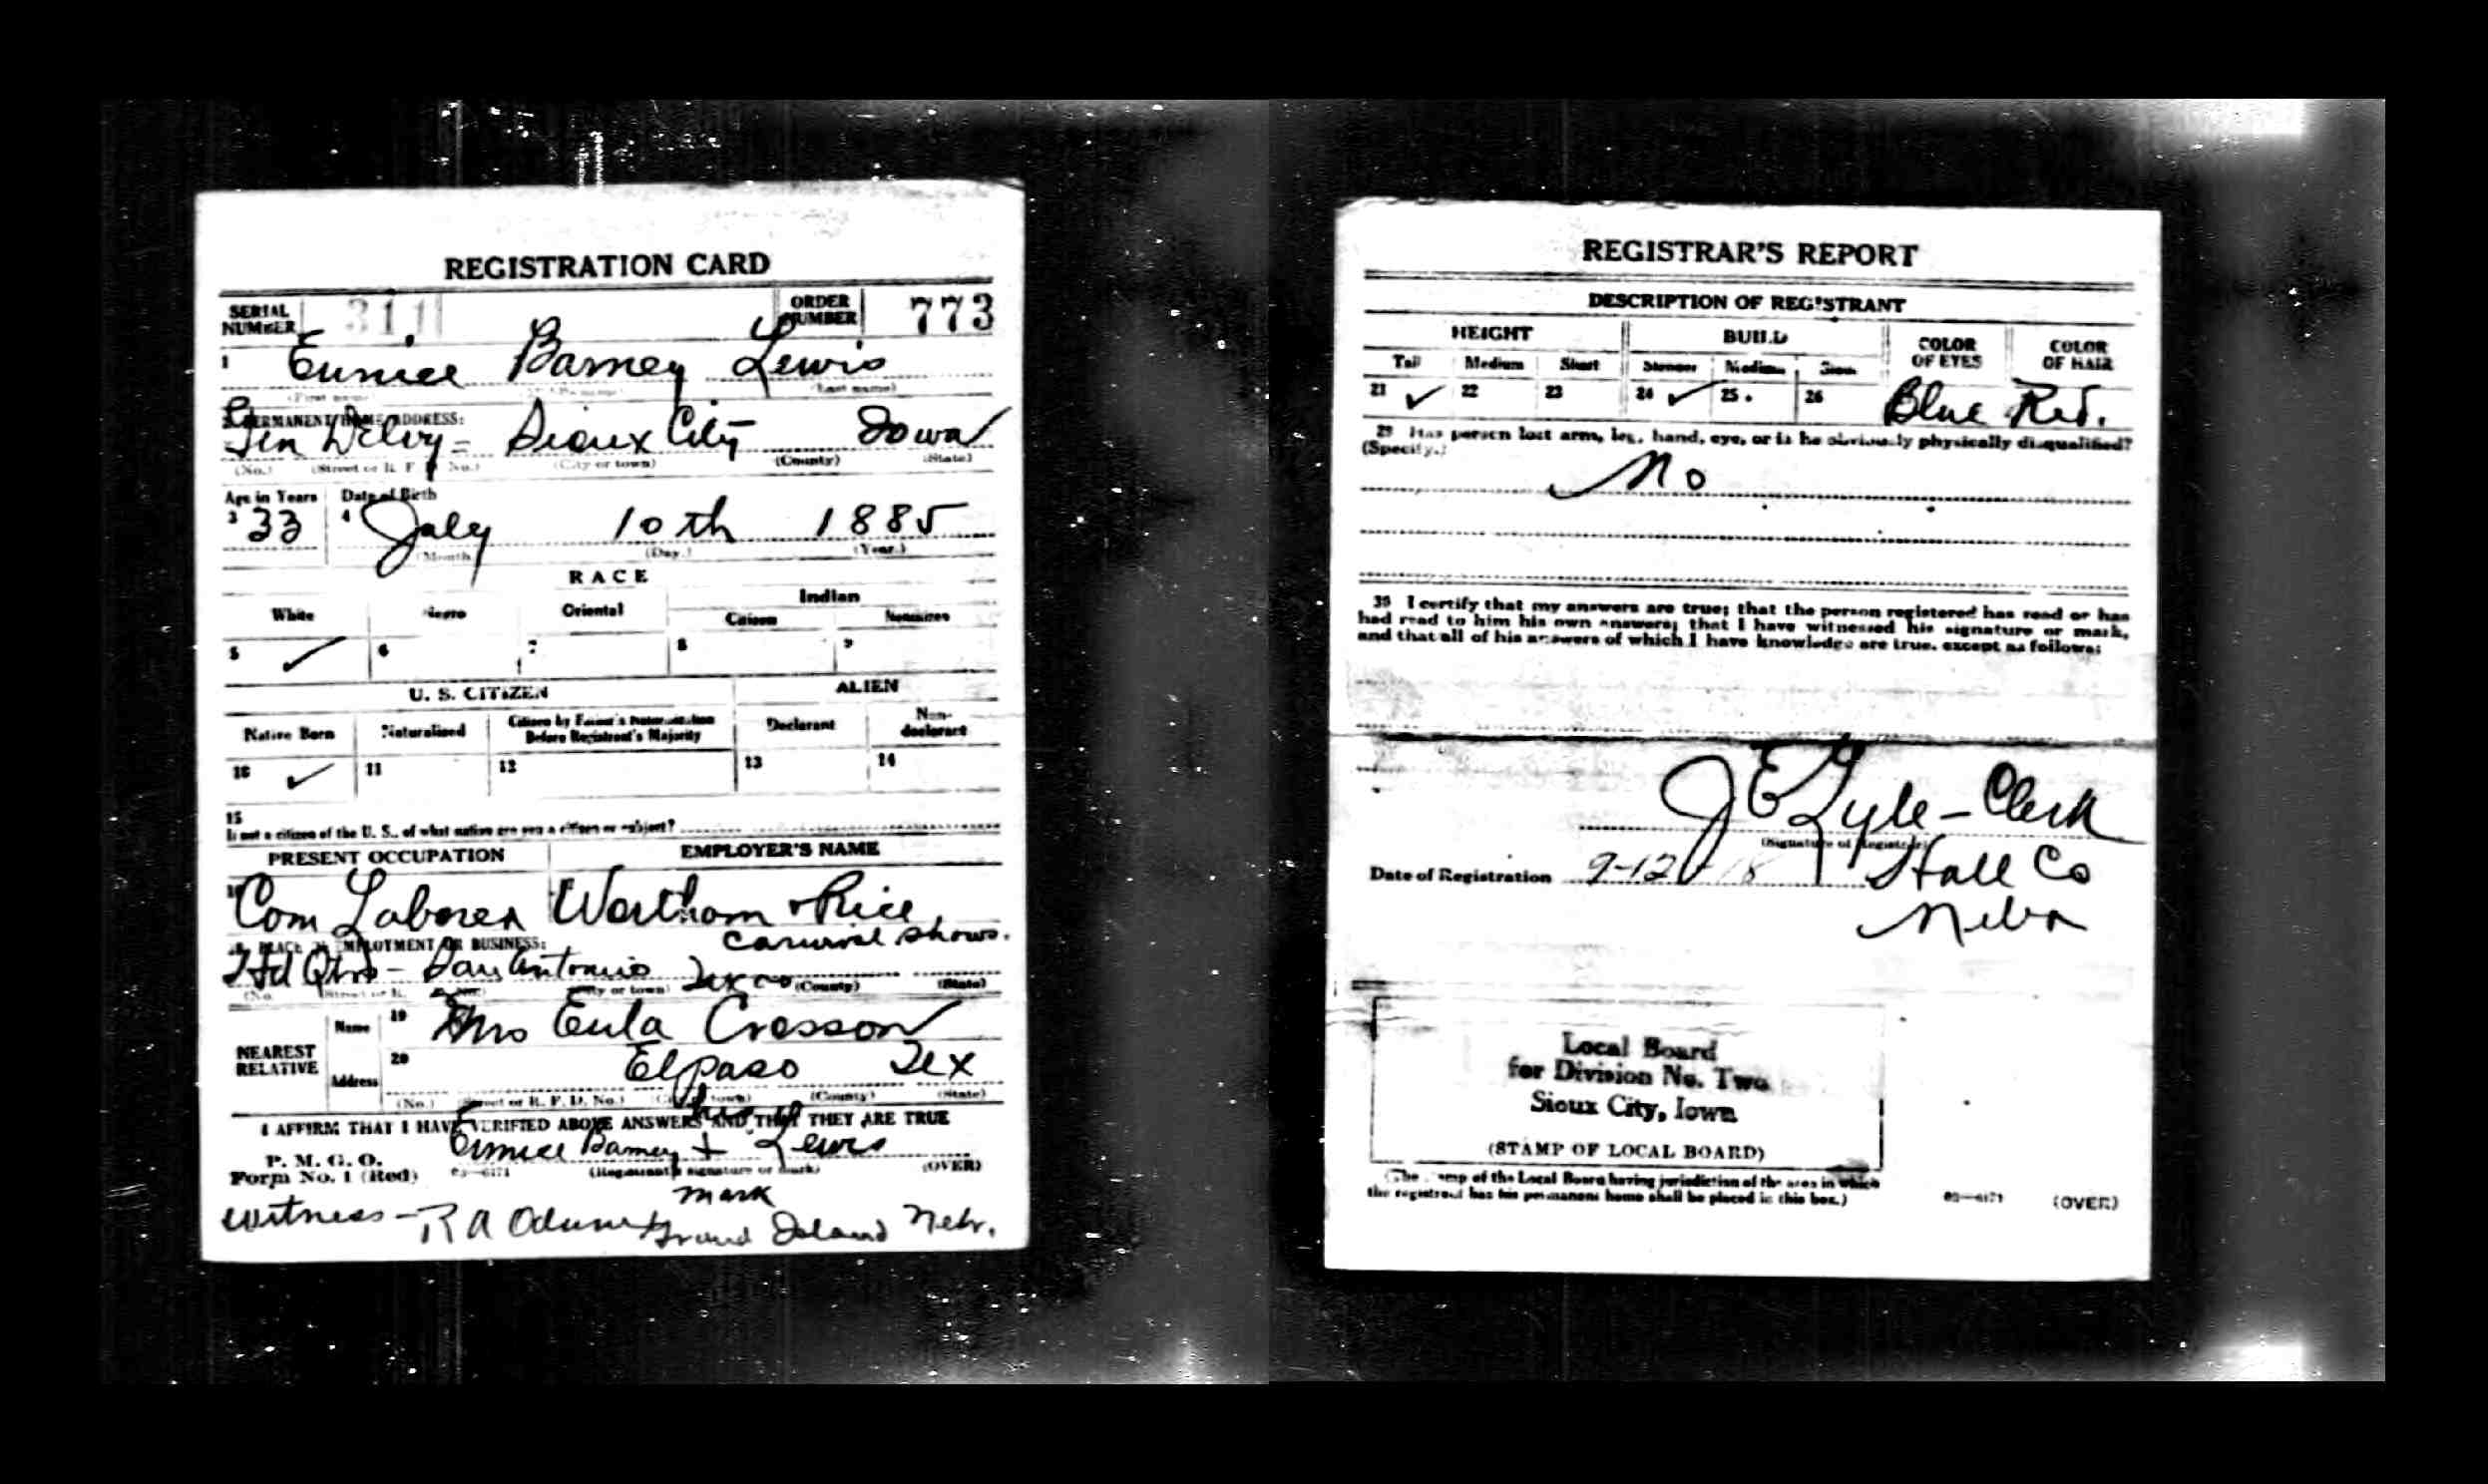 REGISTRATION CARD
SERIAL NUMBER 311 ORDER NUMBER 773
1 Eunice Barney Lewis
(First name) (Last name)
2 PERMANENT HOME ADDRESS:
Gen Delvy - Sioux City Iowa
(No.) (Street or R. F. D. No.) (City or town) (County) (State)
Age in Years Date of Birth
3 33 4 July 10th 1885
(Month) (Day.) (Year.)
RACE
White Negro Oriental Indian
Citizen Noncitizen
5 ✓ 6 7 8 9
U. S. CITIZEN ALIEN
Native Born Naturalized Citizen by Father's Naturalization Before Registrant's Majority Declarant Non-declarant
10 ✓ 11 12 13 14
15
If not a citizen of the U. S., of what nation are you a citizen or subject?
PRESENT OCCUPATION EMPLOYER'S NAME
16 Com Laborer Wortham & Rice
carnival shows.
18 PLACE OF EMPLOYMENT OR BUSINESS:
Hd Qtrs - San Antonio Texas
(No.) (Street or R. F. D. No.) (City or town) (County) (State)
NEAREST RELATIVE
Name 19 Mrs Eula Crosson
Address 20 Elpaso Tex
(No.) (Street or R. F. D. No.) (City or town) (County) (State)
I AFFIRM THAT I HAVE VERIFIED ABOVE ANSWERS AND THAT THEY ARE TRUE
his
Eunice Barney + Lewis
P. M. G. O.
Form No. 1 (Red) 03—6171 (Registrant's signature or mark) (OVER)
mark
witness - R A Grand Island Nebr.
REGISTRAR'S REPORT
DESCRIPTION OF REGISTRANT
HEIGHT BUILD COLOR OF EYES COLOR OF HAIR
Tall Medium Short Slender Medium Stout
21 ✓ 22 23 24 ✓ 25 26 Blue Red.
29 Has person lost arm, leg, hand, eye, or is he obviously physically disqualified?
(Specify.)
No
30 I certify that my answers are true; that the person registered has read or has
had read to him his own answers; that I have witnessed his signature or mark,
and that all of his answers of which I have knowledge are true, except as follows:
J E Lyle - Clerk
(Signature of Registrar)
Date of Registration 9-12-18 Hall Co
Nebr
Local Board
for Division No. Two
Sioux City, Iowa
(STAMP OF LOCAL BOARD)
(The stamp of the Local Board having jurisdiction of the area in which
the registrant has his permanent home shall be placed in this box.)
03—6171 (OVER)